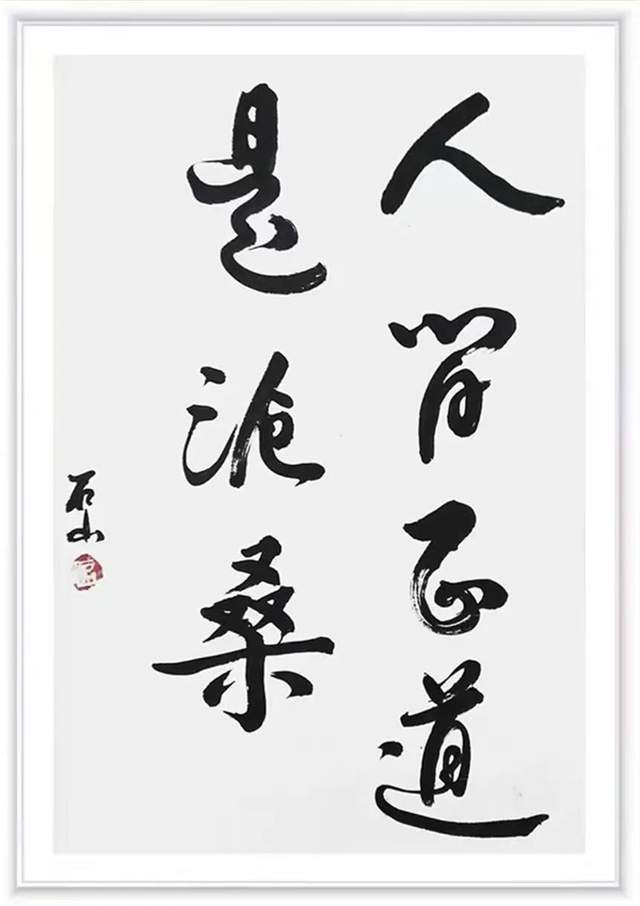 人间正道
是沧桑
石山